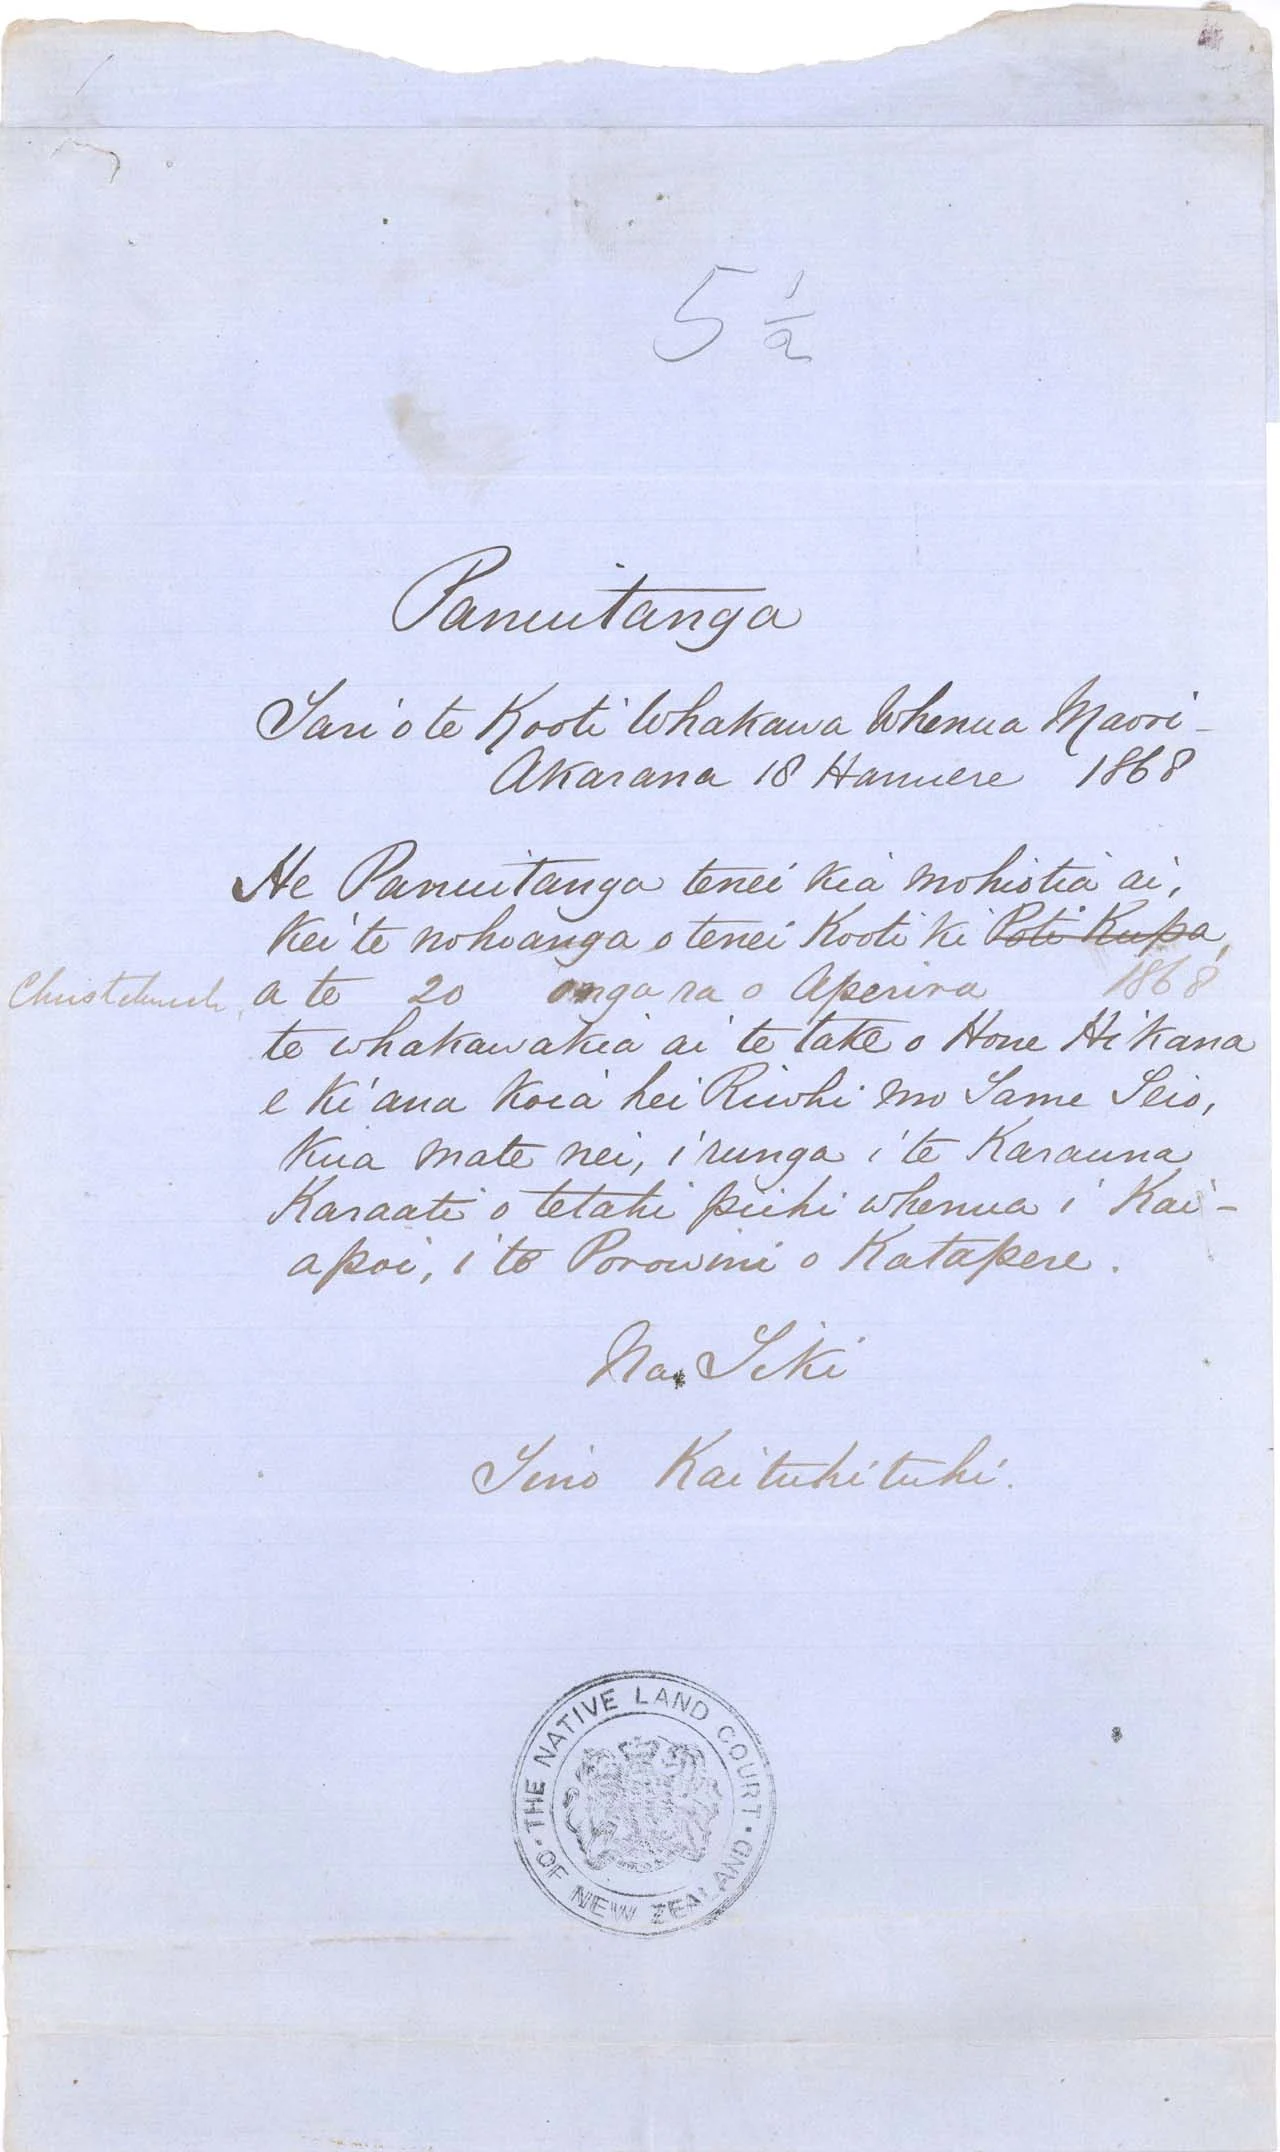 5 1/2
Panuitanga
Tari o te Kooti Whakawa Whenua Maori -
Akarana 18 Hanuere 1868
He Panuitanga tenei kia mohiotia ai,
kei te nohoanga o tenei Kooti ki Poti Kupa,
Christchurch, a te 20 o nga ra o Aperira 1868
te whakawakia ai te take o Hone Hikana
e ki ana koia hei Riiwhi mo Tame Teio,
kua mate nei, i runga i te Karauna
Karaati o tetahi piihi whenua i Kai-
apoi, i te Porowini o Katapere.
Na Tiki
Tino Kaituhituhi.
· THE NATIVE LAND COURT · OF NEW ZEALAND